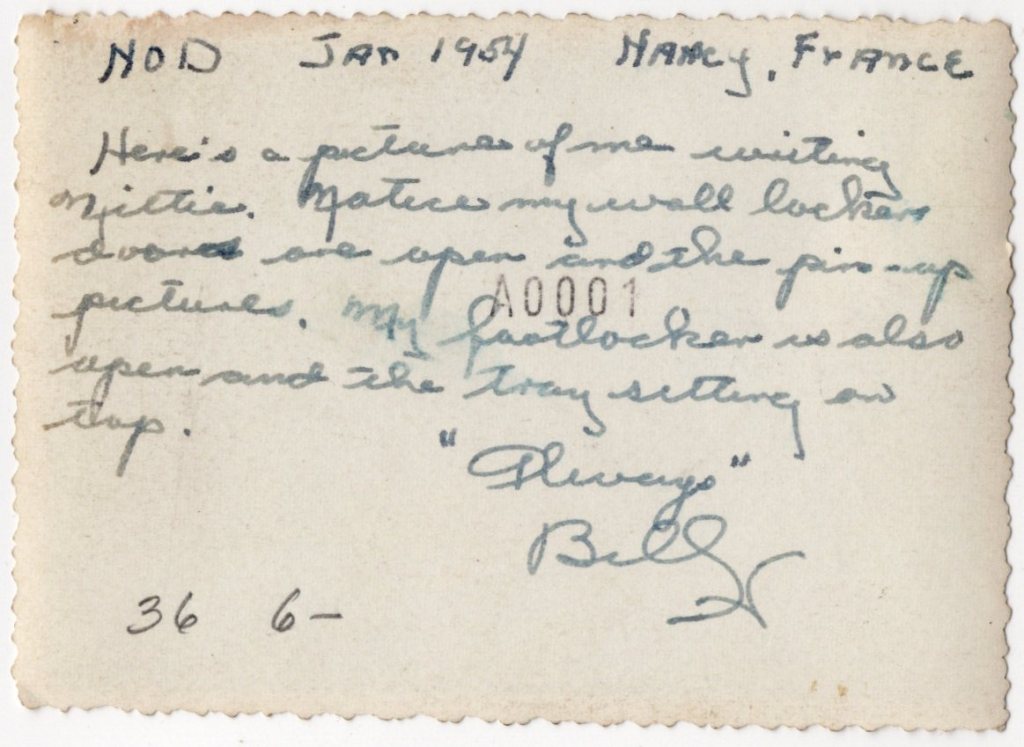 NOD Jan 1954 Nancy, France
Here's a picture of me writing
Mittie. Notice my wall locker
doors are open and the pin-up
pictures. My footlocker is also
A0001
open and the tray sitting on
top.
"Always"
Billy
36 6-